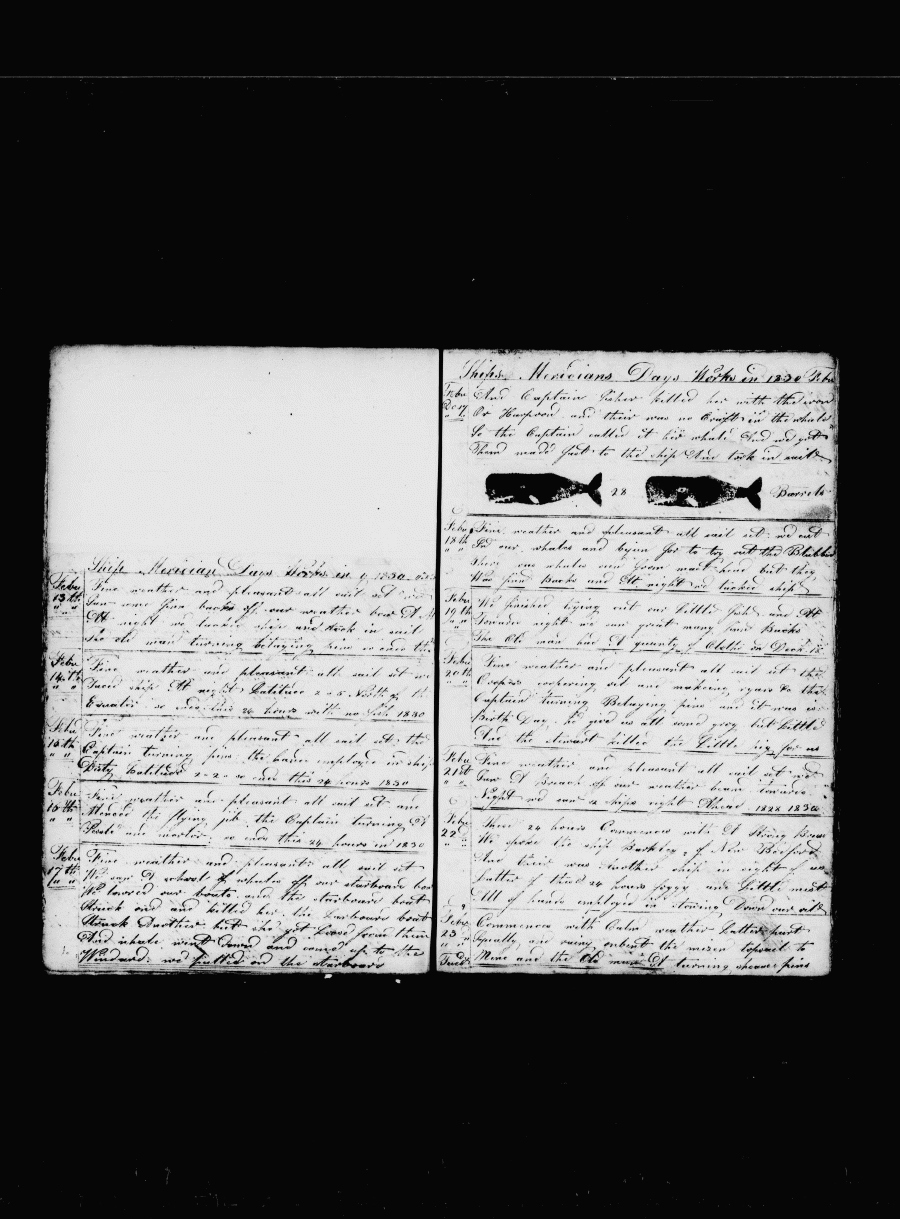 Ships Meridian Days Works in 1830
Febu Fine weather and pleasant all sail set we
13th Saw some fine backs off our weather bow
At night we tacked ship and took in sail
The old man turning belaying pins so ends
Febu Fine weather and pleasant all sail set we
14th Tacked ship At night Latitude 2=5 North of the
Equator so ends this 24 hours with no fish 1830
Febu Fine weather and pleasant all sail set the
15th Captain turning pins the hands employed in ship
Duty Latitude 2=20 so ends this 24 hours 1830
Febu Fine weather and pleasant all sail set and
16th Mended the flying jib the Captain turning
so ends this 24 hours in 1830
Febu Fine weather and pleasant all sail set
17th We saw A school of whales off our starboard bow
We lowered our boats and the starboard boat
Struck one and killed her the larboard boat
Struck Another but she got loose from them
And whale went Down and comed up to the
Windward we pulled on the starboard
Ships Meridians Days Works in 1830 Febu
Febu And Captain Fisher killed her with the iron
17 Or Harpoon and their was no Craft in the whale
So the Captain called it his whale And we got
Them made fast to the ship And took in sail
28 Barrels
Febu Fine weather and pleasant all sail set we cut
18th In our whales and begun for to try out the Blubber
There was whales seen from mast head but they
Was finn Backs and At night we tacked ship
Febu We finished trying out our little fish and At
19th Towards night we saw great many finn Backs
The Old man had A quantity of Cloths on Deck
Febu Fine weather and pleasant all sail set the
20th Coopers coopering oil and makeing
Captain turning Belaying pins and it was
Birth Day he give us all some grog but little
And the stewart killed the little pig for us
Febu Fine weather and pleasant all sail set we
21st Saw A Breach off our weather beam towards
Night we saw 2 ships right Ahead 1830
Febu These 24 hours Commences with A Strong Breeze
22 We spoke the ship Barkley of New Bedford
And their was another ship in sight of us
Latter of these 24 hours foggy and little mist
All of hands employed in stowing Down our oil
Febu Commences with Calm weather Latter part
23 Squally and rainy unbent the mizen topsail to
Mend and the Old man At turning pins